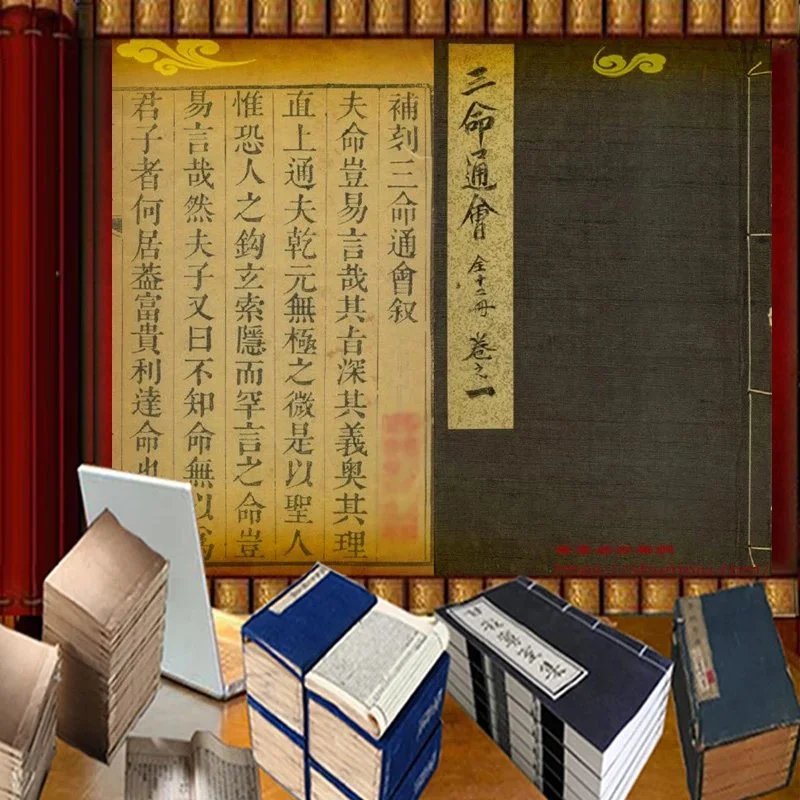 三命通會 全十二冊 卷之一
補刻三命通會叙
夫命豈易言哉其旨深其義奥其理
直上通夫乾元無極之微是以聖人
惟恐人之鈎玄索隱而罕言之命豈
易言哉然夫子又曰不知命無以為
君子者何居葢富貴利達命也